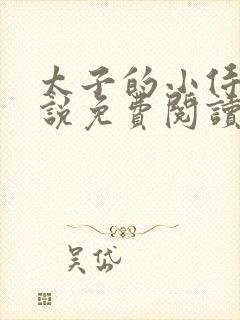 太子的小侍
說免費閱讀
吳岱